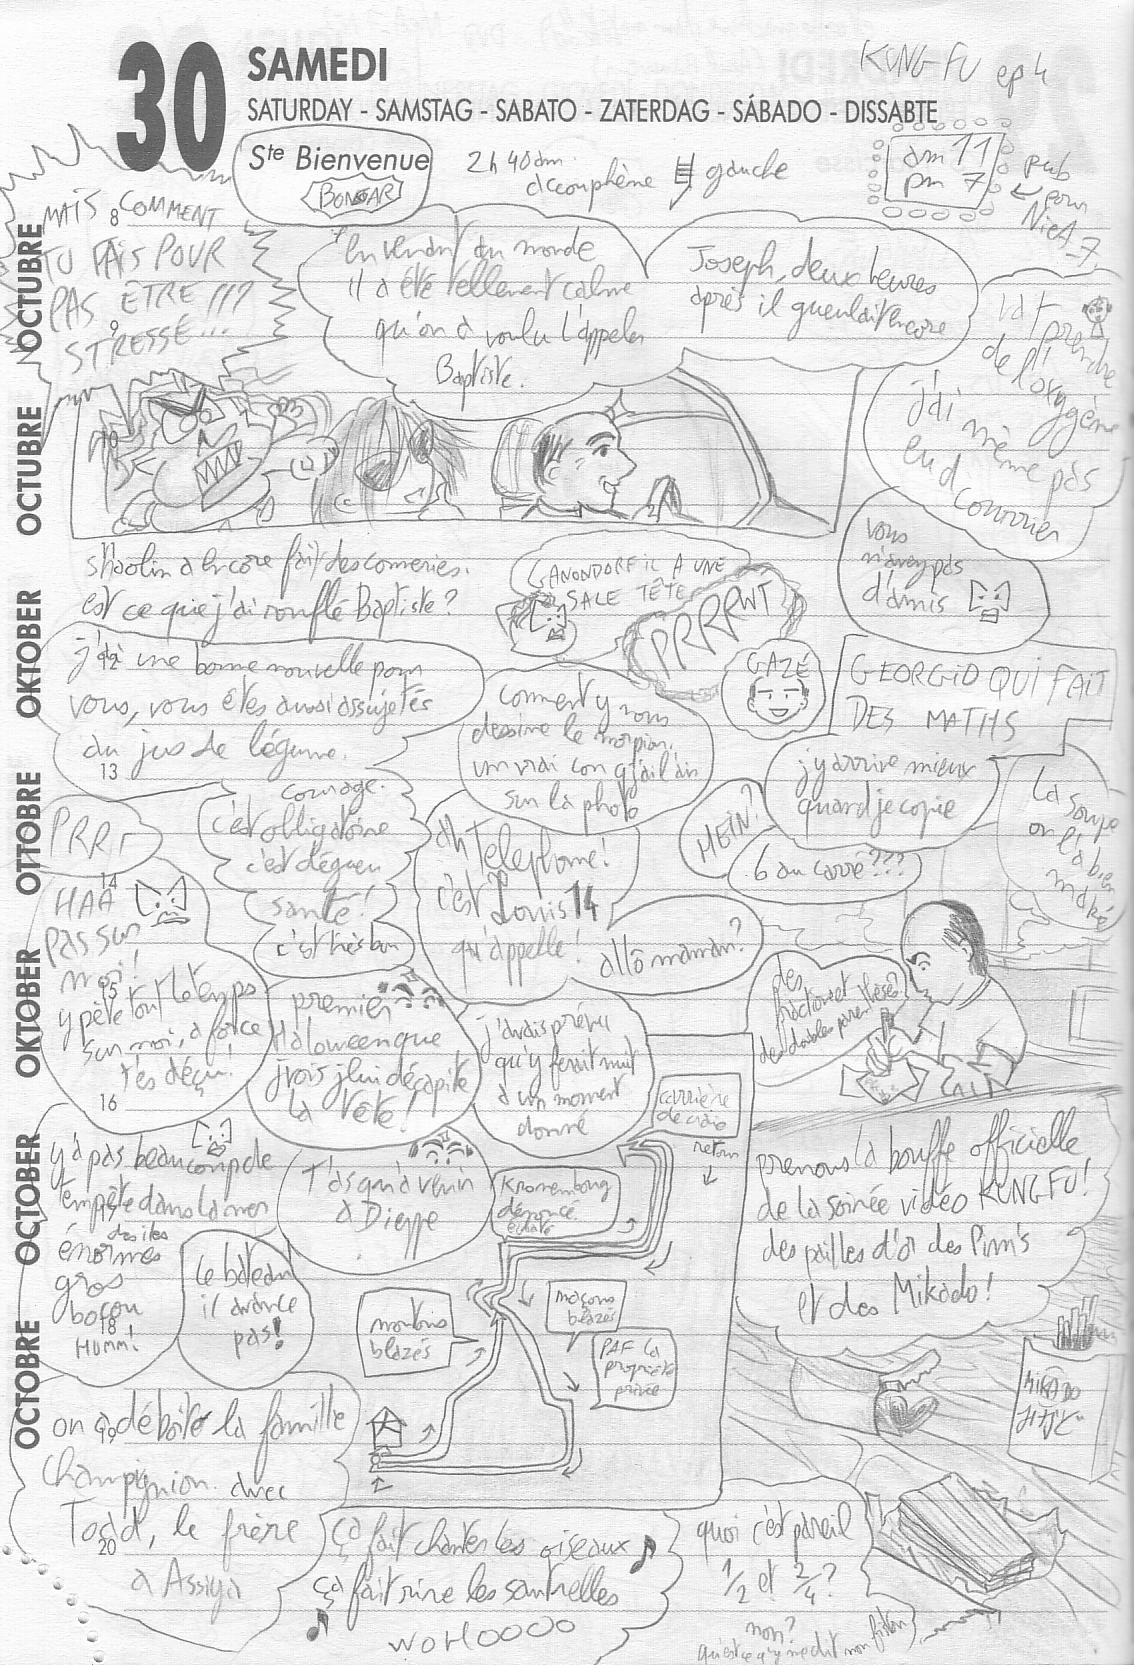 30
SAMEDI
SATURDAY - SAMSTAG - SABATO - ZATERDAG - SÁBADO - DISSABTE
KUNG-FU ep 4
Ste Bienvenue
BONGAR
2h40am.
acouphène gauche
am 11
pm 7
pub
pour
NieA_7
OCTUBRE
OCTUBRE
OKTOBER
OTTOBRE
OKTOBER
OCTOBER
OCTOBRE
8
MAIS COMMENT
TU FAIS POUR
PAS ÊTRE !!!?
9
STRESSÉ...
En venant au monde
il a été tellement calme
qu'on a voulu l'appeler
Baptiste.
Joseph, deux heures
après il gueulait encore
va t
prendre
de l'
de l'oxygène
j'ai même pas
eu d courrier
vous
n'avez pas
d'amis
shaolin a encore fait des conneries.
est ce que j'ai ronflé Baptiste?
GANONDORF IL A UNE
SALE TÊTE
PRRRWT
GAZÉ
GEORGIO QUI FAIT
DES MATHS
12
j'ai une bonne nouvelle pour
vous, vous êtes aussi assujetés
au jus de légume.
13
comment y nous
dessine le morpion.
un vrai con q'ail'ain
sur la photo
j'y arrive mieux
quand je copie
HEIN?
6 au carré???
la soupe
on l'a bien
maké
PRRr
courage.
c'est obligatoire
c'est dégueu
santé!
c'est très bon
ah téléphone!
c'est Louis 14
qui appelle!
allô maman?
14
HAA
PAS SUR
moi!
15
y pète tout le temps
sur moi, à force
t'es déçu!
16
premier
Haloween que
j'vois j'lui décapite
la tête!
j'avais prévu
qu'y ferait nuit
à un moment
donné
des
fractions et
des doubles parenthèses?
carrière
de craie
retour
y'a pas beaucoup de
tempête dans la mer
des iles
énormes
gros
boçou
18
HUMM!
le bateau
il avance
pas!
T'as qu'à venir
à Dieppe
Kronembourg
dénoncé
éclaté
moutons
blazés
maçons
blazés
PAF la
propriété
privée
prenons la bouffe officielle
de la soirée vidéo KUNG FU!
des pailles d'or des Pim's
et des Mikado!
MIKADO
19
on a déboité la famille
champignion avec
Toad, le frère
20
à Assiya
ça fait chanter les oiseaux
ça fait rire les sauterelles
WOHOOOO
quoi c'est pareil
1/2 et 2/4?
non?
qu'est ce qu'y me dit mon fiston